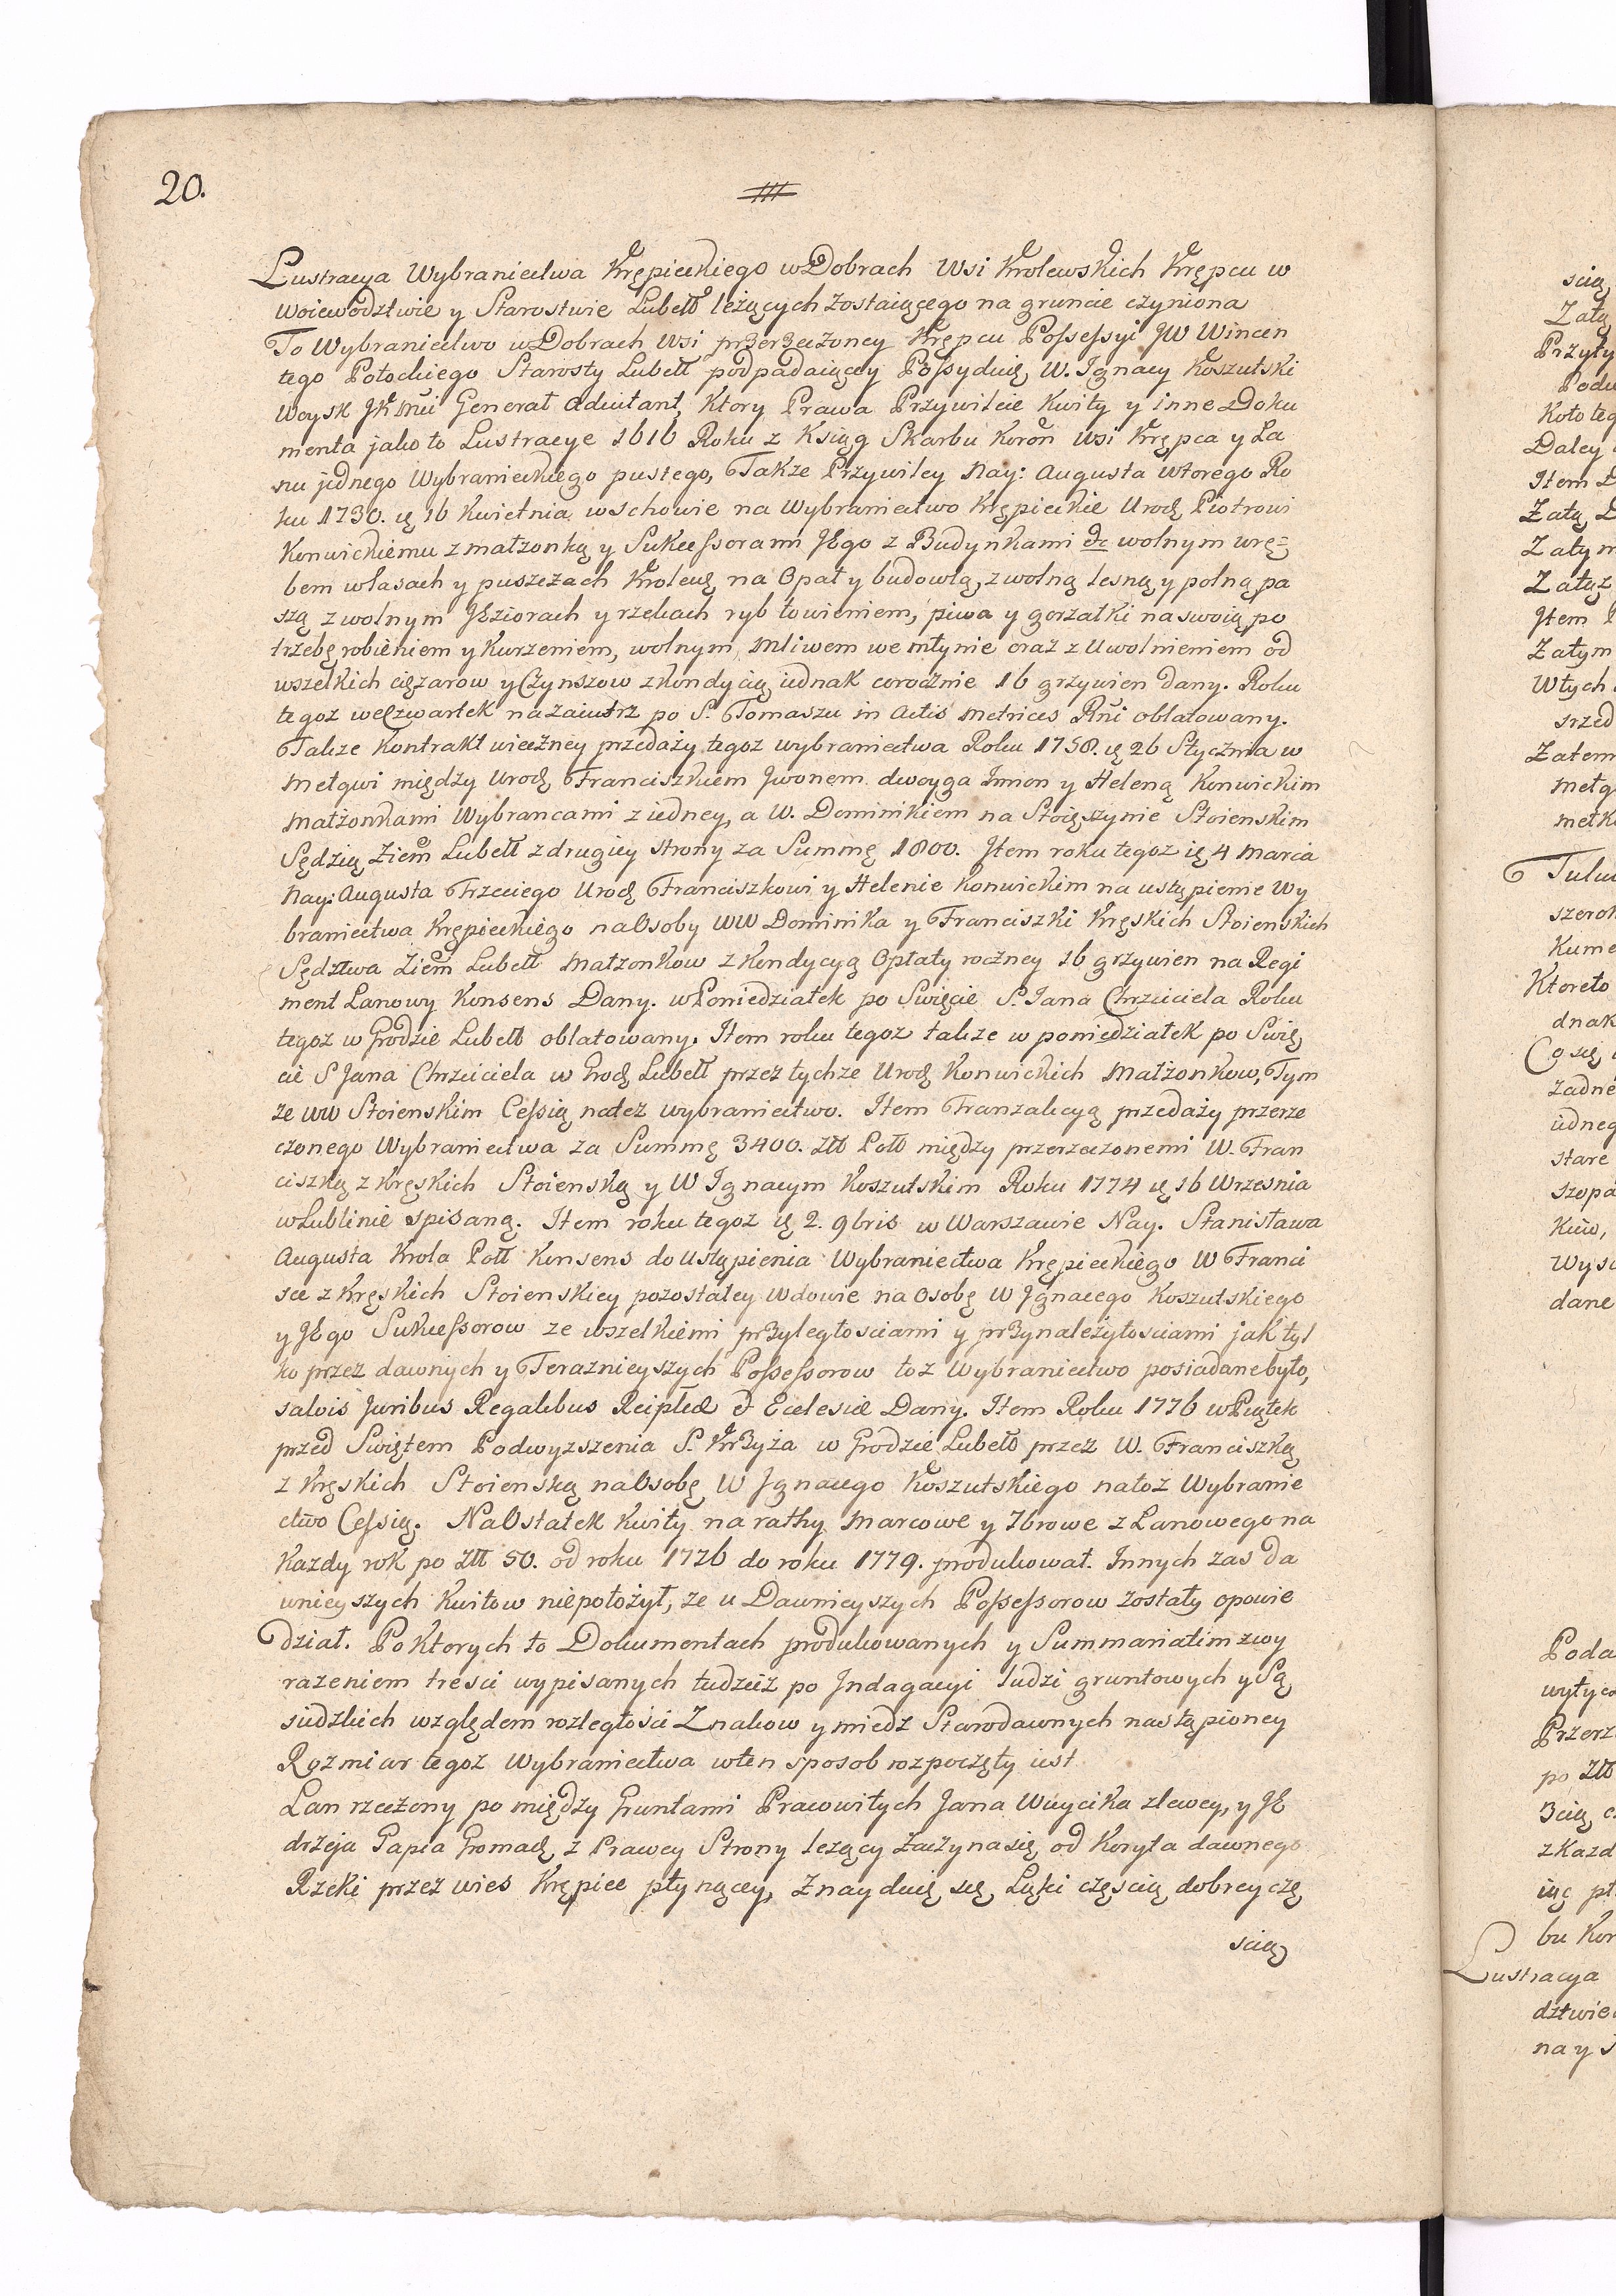 20.
Lustracya Wybraniectwa Krępieckiego w Dobrach Wsi Krolewskich Krępcu w
Woiewodztwie y Starostwie Lubell leżących zostaiącego na gruncie czyniona
To Wybraniectwo w Dobrach Wsi przerzeczoney Krępcu Possessyi JW Wincen
tego Potockiego Starosty Lubell podpadaiącey Possyduię W. Ignacy Koszutski
Woysk JKMci Generał Adiutant, Ktory Prawa Przywileie Kwity y inne Doku
menta jako to Lustracye 1616 Roku z Ksiąg Skarbu Koron Wsi Krępca y Ła
nu jednego Wybranieckiego pustego, Takze Przywiley Nay: Augusta Wtorego Ro
ku 1730. ię 16 Kwietnia w Schowie na Wybraniectwo Krępieckie Urod Piotrowi
Konwickiemu z małzonką y Sukcessorami JEgo z Budynkami &c wolnym wrę=
bem w lasach y puszczach Krolews na Opał y budowlą, z wolną lesną y polną pa
szą z wolnym JEziorach y rzekach ryb łowieniem, piwa y gorzałki na swoią po
trzebę robieniem y Kurzeniem, wolnym mliwem we młynie oraz z Uwolnieniem od
wszelkich cięzarow y Czynszow z kondycią iednak corocznie 16 grzywien dany. Roku
tegoz we Czwartek nazaiutrz po S. Tomaszu in Actis Metrices Rni oblatowany.
Takze Kontrakt wieczney przedaży tegoz wybraniectwa Roku 1758. ię 26 Stycznia w
Mełgwi między Urod Franciszkiem Jwonem dwoyga Imion y Heleną Konwickim
Małzonkami Wybrancami z iedney, a W. Dominikiem na Stoięszynie Stoienskim
Sędzią Ziem Lubell z drugiey strony za Summę 1800. Jtem roku tegoz ię 4 Marca
Nay: Augusta Trzeciego Urod Franciszkowi y Helenie Konwickim na ustąpienie Wy
braniectwa Krępieckiego na Osoby WW Dominika y Franciszki Kręskich Stoienskich
Sędztwa Ziem Lubell Małzonkow z Kondycyą Opłaty roczney 16 grzywien na Regi
ment Łanowy Konsens Dany. w Poniedziałek po Swięcie S. Jana Chrzciciela Roku
tegoz w Grodzie Lubell oblatowany. Item roku tegoz takze w poniedziałek po Swię
cie S Jana Chrzciciela w Grod Lubell przez tychze Urod Konwickich Małzonkow, Tym
ze WW Stoienskim Cessią na tez wybraniectwo. Item Tranzakcyą przedaży przerze
czonego Wybraniectwa za Summę 3400. Złł Poll między przerzeczonemi W. Fran
ciszką z Kręskich Stoienską y W Ignacym Koszutskim Roku 1774 ię 16 Wrzesnia
w Lublinie spisaną. Item roku tegoz ię 2. 9bris w Warszawie Nay. Stanisława
Augusta Krola Poll Konsens do Ustąpienia Wybraniectwa Krępieckiego W Franci
sce z Kręskich Stoienskiey pozostałey Wdowie na Osobę W Jgnacego Koszutskiego
y JEgo Sukcessorow ze wszelkiemi przyległosciami y przynależytosciami jak tyl
ko przez dawnych y Teraznieyszych Possessorow toz Wybraniectwo posiadane było,
salvis Juribus Regalibus Reipłcæ & Eclesiæ Dany. Item Roku 1776 w Piątek
przed Swiętem Podwyzszenia S. Krzyża w Grodzie Lubell przez W. Franciszkę
z Kręskich Stoienską na Osobę W Jgnacego Koszutskiego na toz Wybranie
ctwo Cessią. Na Ostatek Kwity na rathy Marcowe y 7browe z Łanowego na
Kazdy rok po Złł 50. od roku 1776 do roku 1779. produkował. Innych zas da
wnieyszych Kwitow nie położył, ze u Dawnieyszych Possessorow zostały opowie
dział. Po Ktorych to Dokumentach produkowanych y Summariatim z wy
razeniem tresci wypisanych tudziez po Jndagacyi ludzi gruntowych y Są
siedzkich względem rozległosci Znakow y miedz Starodawnych nastąpioney
Rozmiar tegoz Wybraniectwa w ten sposob rozpoczęty iest
Łan rzeczony po między Gruntami Pracowitych Jana Woycika z lewey, y JE
drzeja Gapia Gromad z Prawey Strony lezący zaczyna się od Koryta dawnego
Rzeki przez wies Krępiec płynącey, Znayduię się Łąki częscią dobrey czę
scią
scią
Załą
Przyty
Koło teg
Daley
Item
Załą
Załym
Załą z
Jtem
Załym
Wtych
srzed
Zatem
mełg
szerok
Kume
Ktoreto
dnak
Co się
zadne
iedneg
stare
szopa
Wys
dane
Poda
wytyc
Przerz
po Złł
z Kazd
bu Kor
Lustracya
dztwie
na y